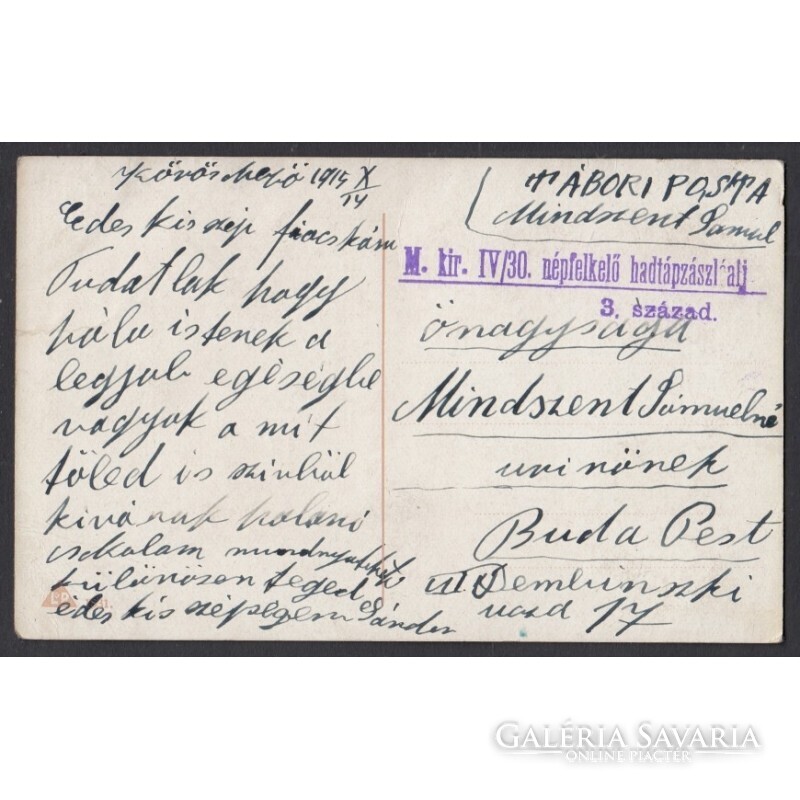 1915 X/14
Edes kis szép fiacskám
Tudatlak hogy
hála istenek a
legjob egéségbe
vagyok a mit
töled is szivböl
kivánok halani
csokolam
különösen teged
édes kis szépségem Sándor
TÁBORI POSTA
Mindszent Samuel
M. kir. IV/30. népfelkelő hadtápzászlóalj
3. század.
önagysága
Mindszent Sámuelné
urinönek
Buda Pest
Dembinszki
17
GALÉRIA SAVARIA
ONLINE PIACTÉR